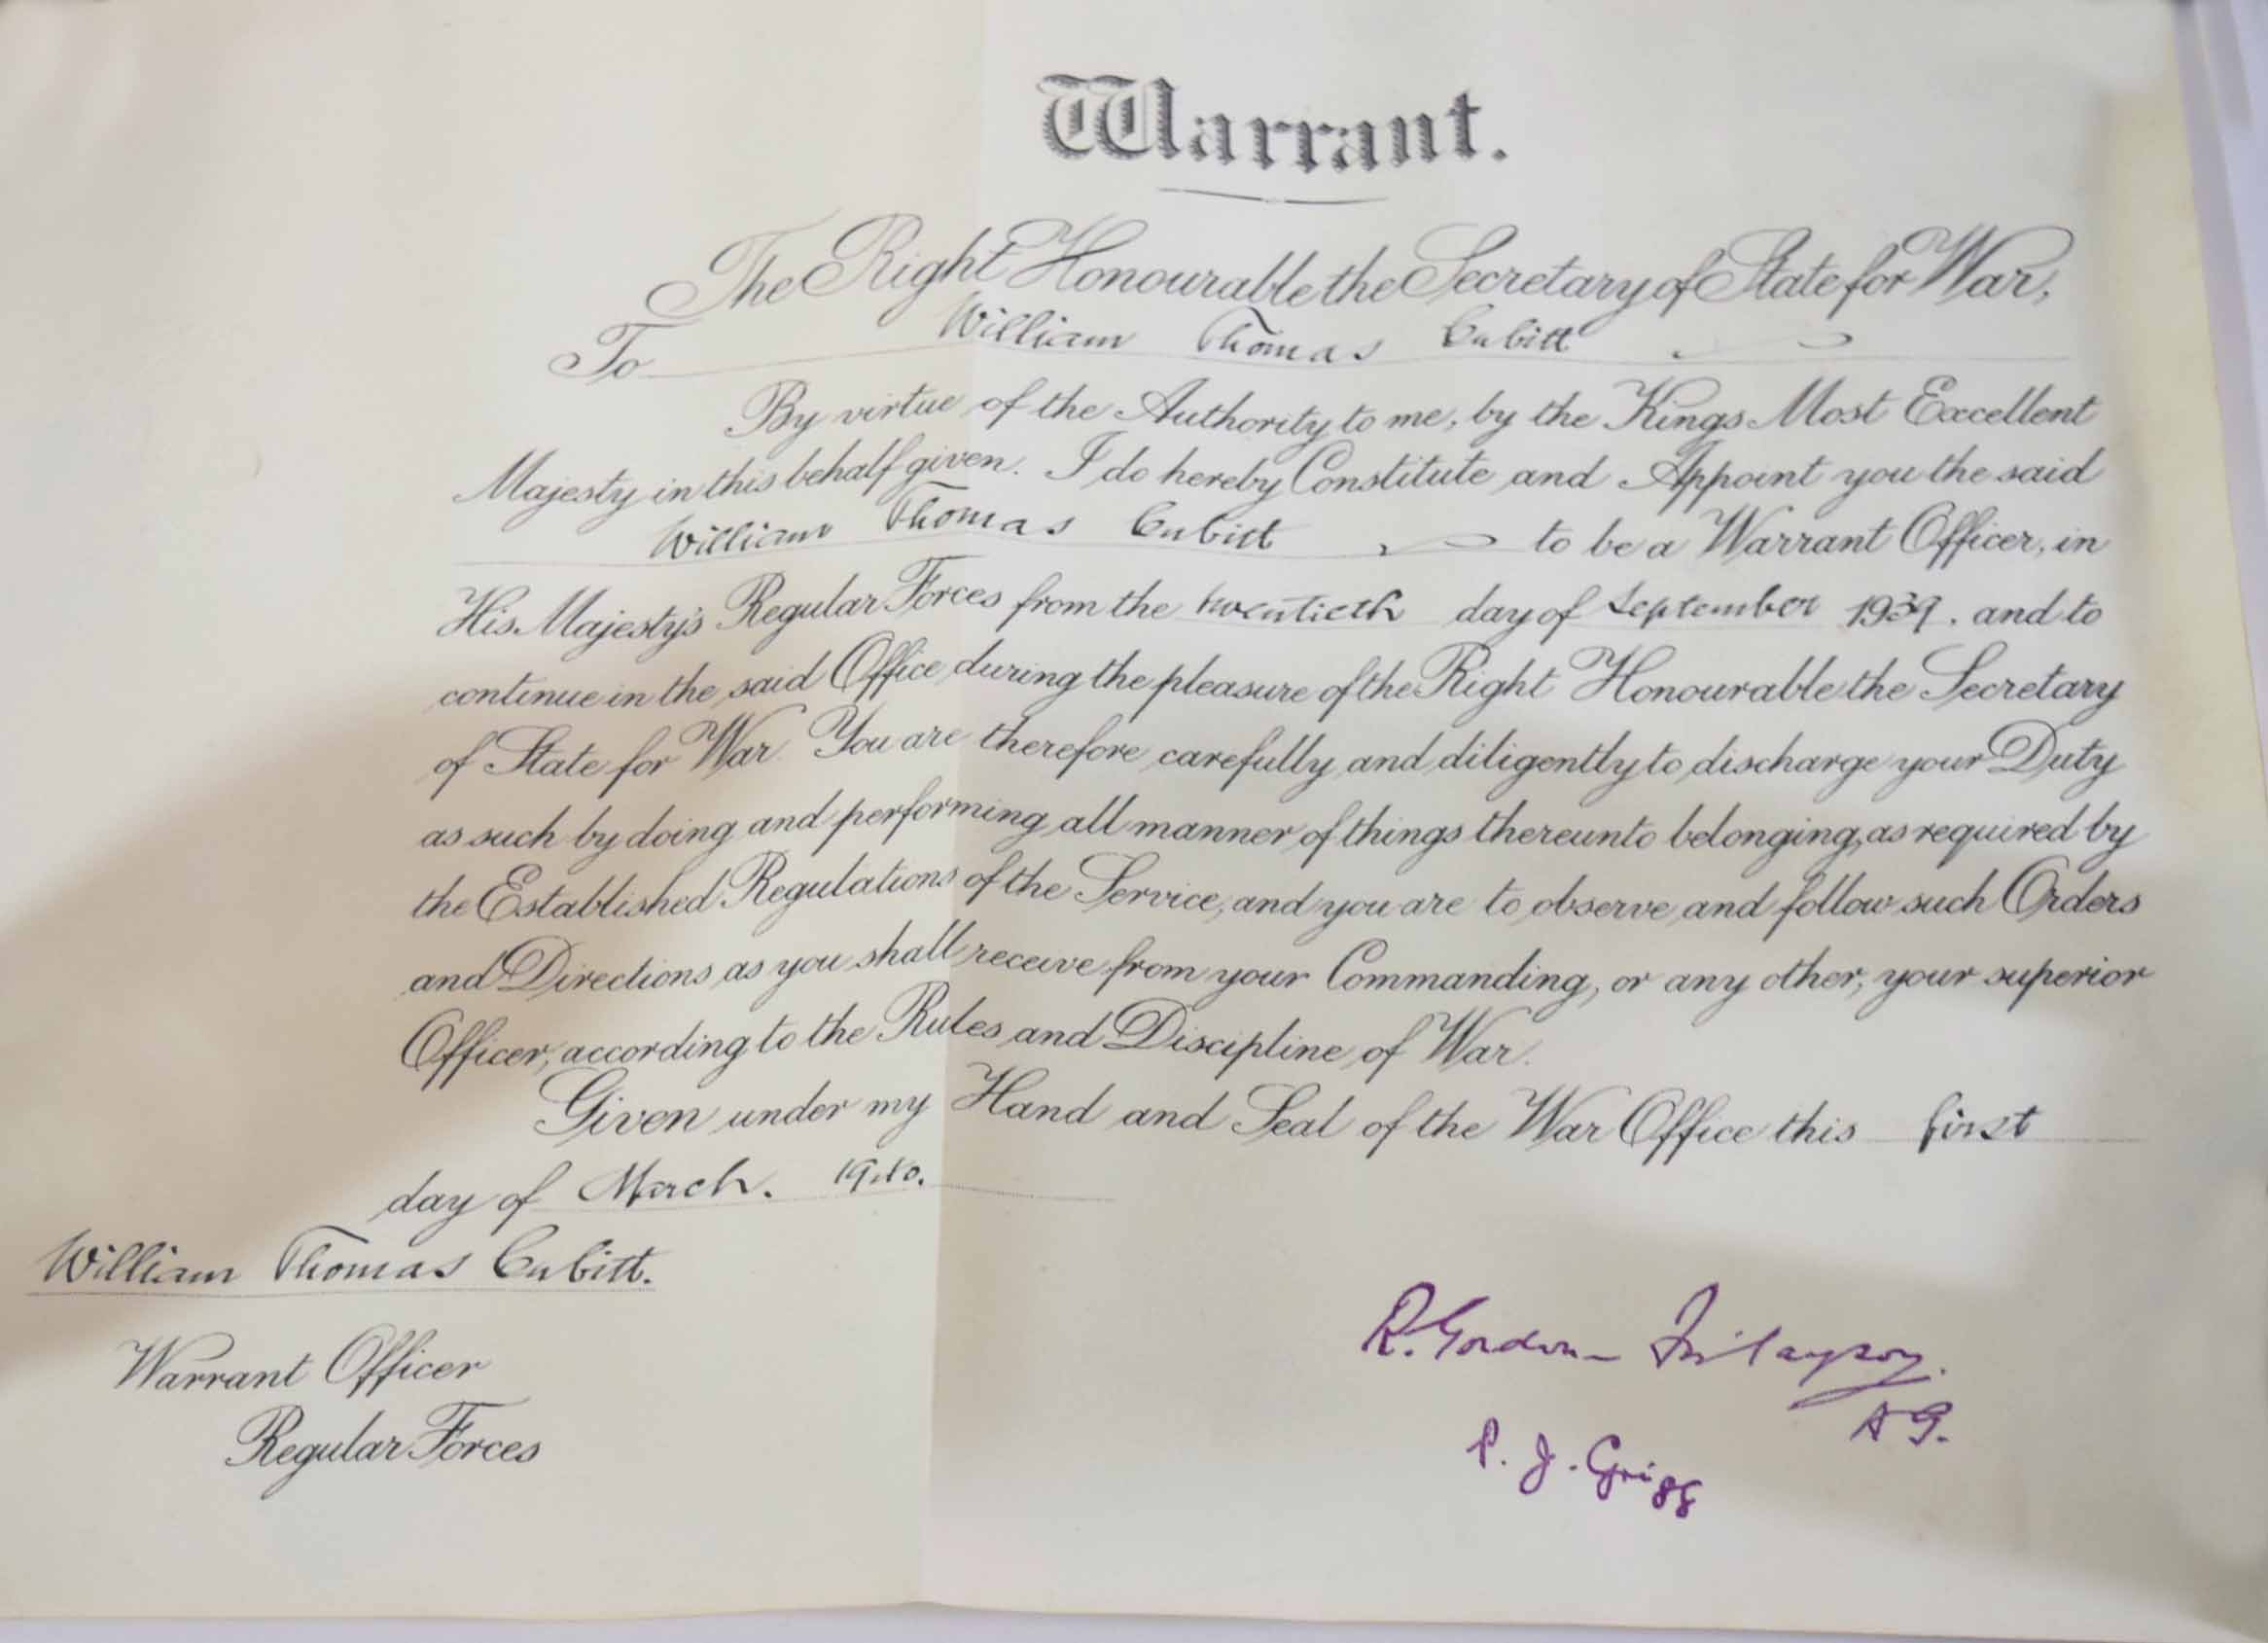 Warrant.
The Right Honourable the Secretary of State for War,
To William Thomas Cubitt
By virtue of the Authority to me, by the Kings Most Excellent
Majesty in this behalf given. I do hereby Constitute and Appoint you the said
William Thomas Cubitt to be a Warrant Officer, in
His Majesty's Regular Forces from the twentieth day of September 1939. and to
continue in the said Office during the pleasure of the Right Honourable the Secretary
of State for War. You are therefore carefully and diligently to discharge your Duty
as such by doing and performing all manner of things thereunto belonging, as required by
the Established Regulations of the Service, and you are to observe and follow such Orders
and Directions as you shall receive from your Commanding, or any other, your superior
Officer, according to the Rules and Discipline of War.
Given under my Hand and Seal of the War Office this first
day of March. 1940.
William Thomas Cubitt.
Warrant Officer
Regular Forces
R. Gordon-Finlayson.
AG.
P. J. Grigg